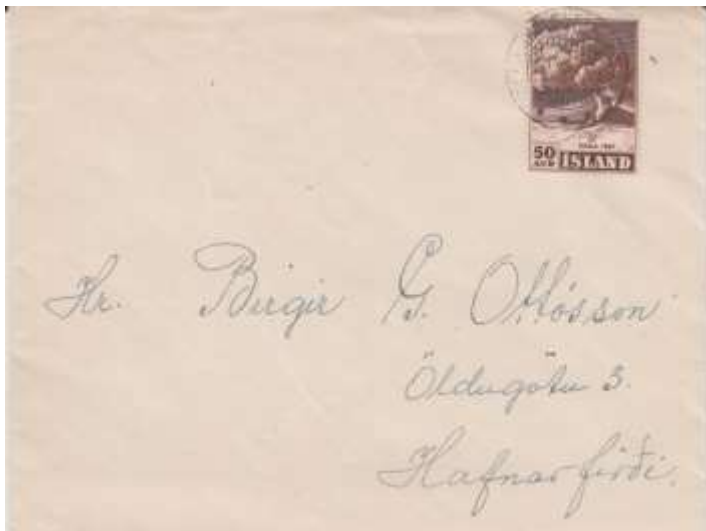 HEKLA 1947
50
AUR ÍSLAND
Hr. Birgir G. Ottósson
Öldugötu 3.
Hafnarfirði.